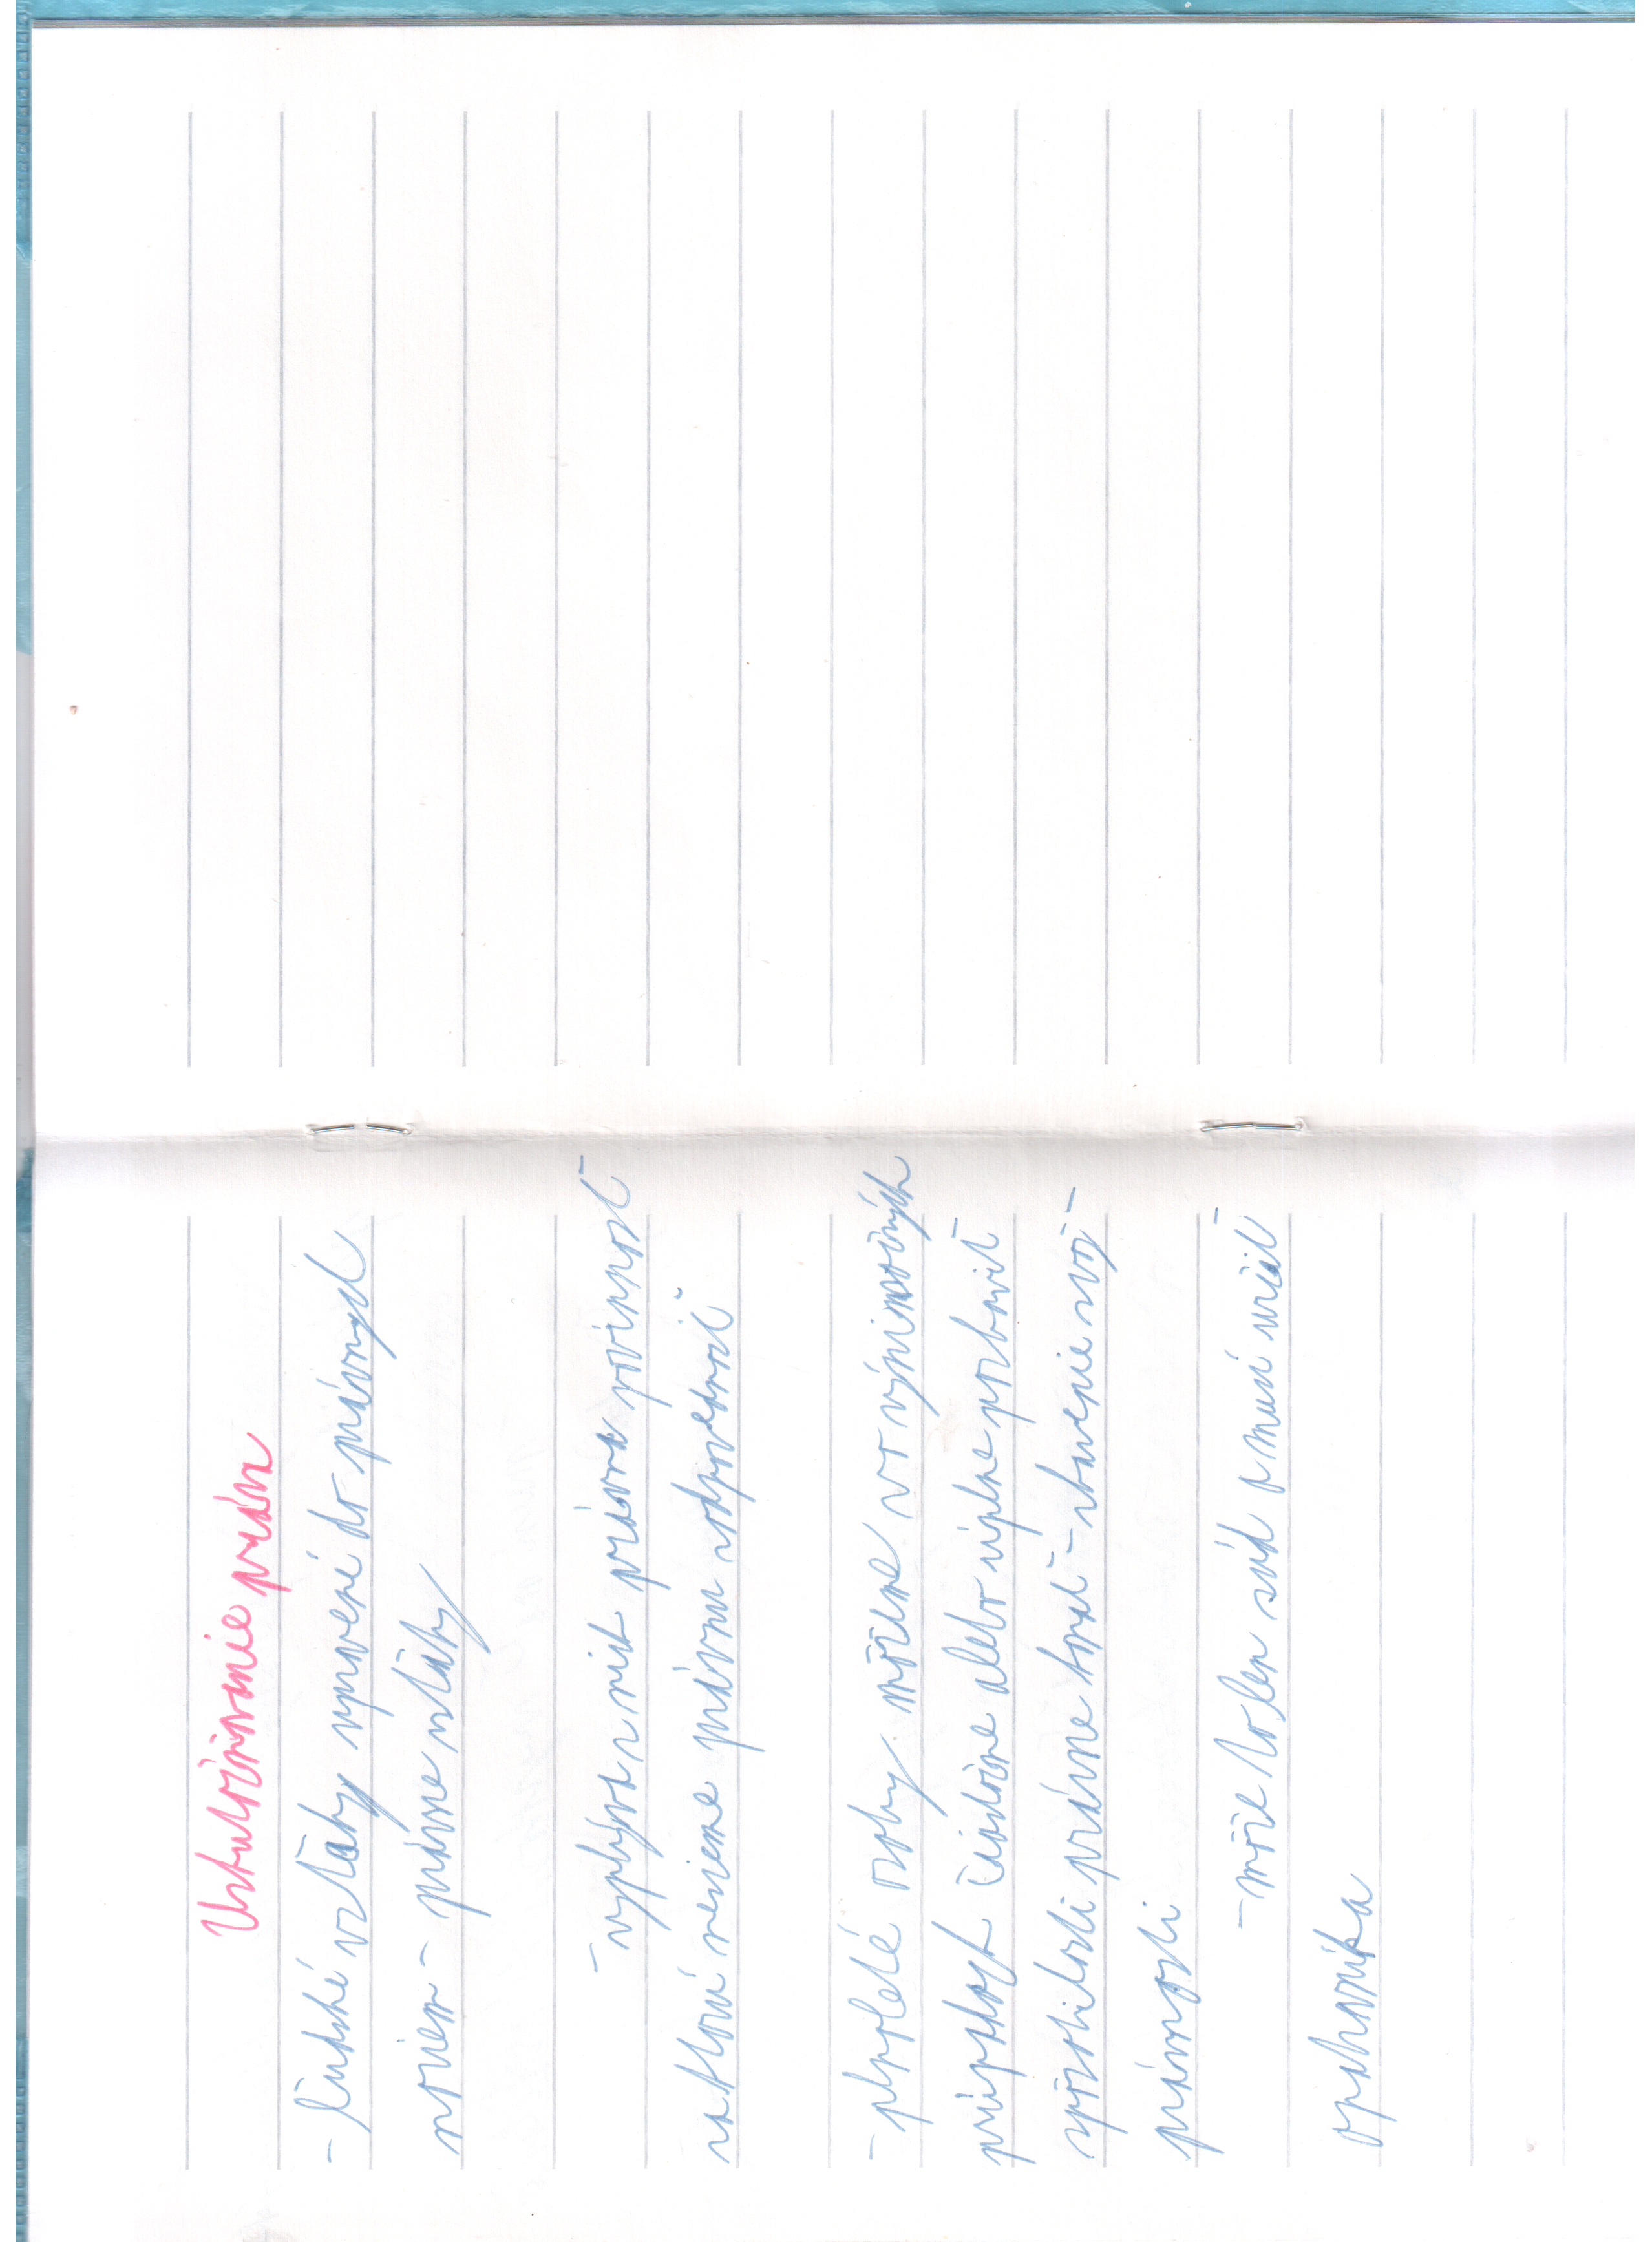 Uskutočňovanie práva
- ľudské vzťahy upravené do právnych
noriem - právne vzťahy
- vyplýva z nich právna povinnosť
za ktorú nesieme právnu zodpovednosť
- plnoleté osoby môžeme vo výnimočných
prípadoch čiastočne alebo úplne pozbaviť
spôsobilosti právne konať - zbavenie svoj-
právnosti
- môže to len súd a musí určiť
opatrovníka